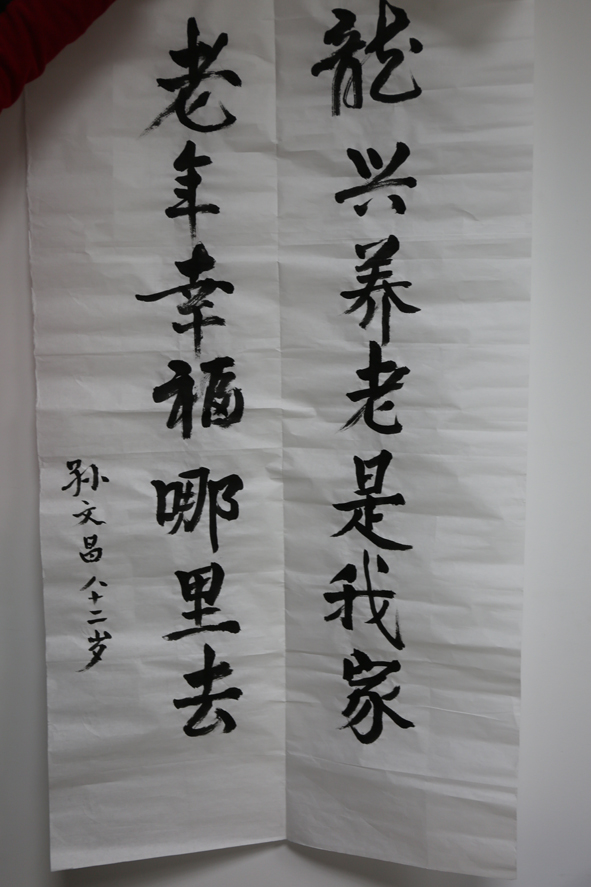 龍兴养老是我家
老年幸福哪里去
孙文昌八十二岁